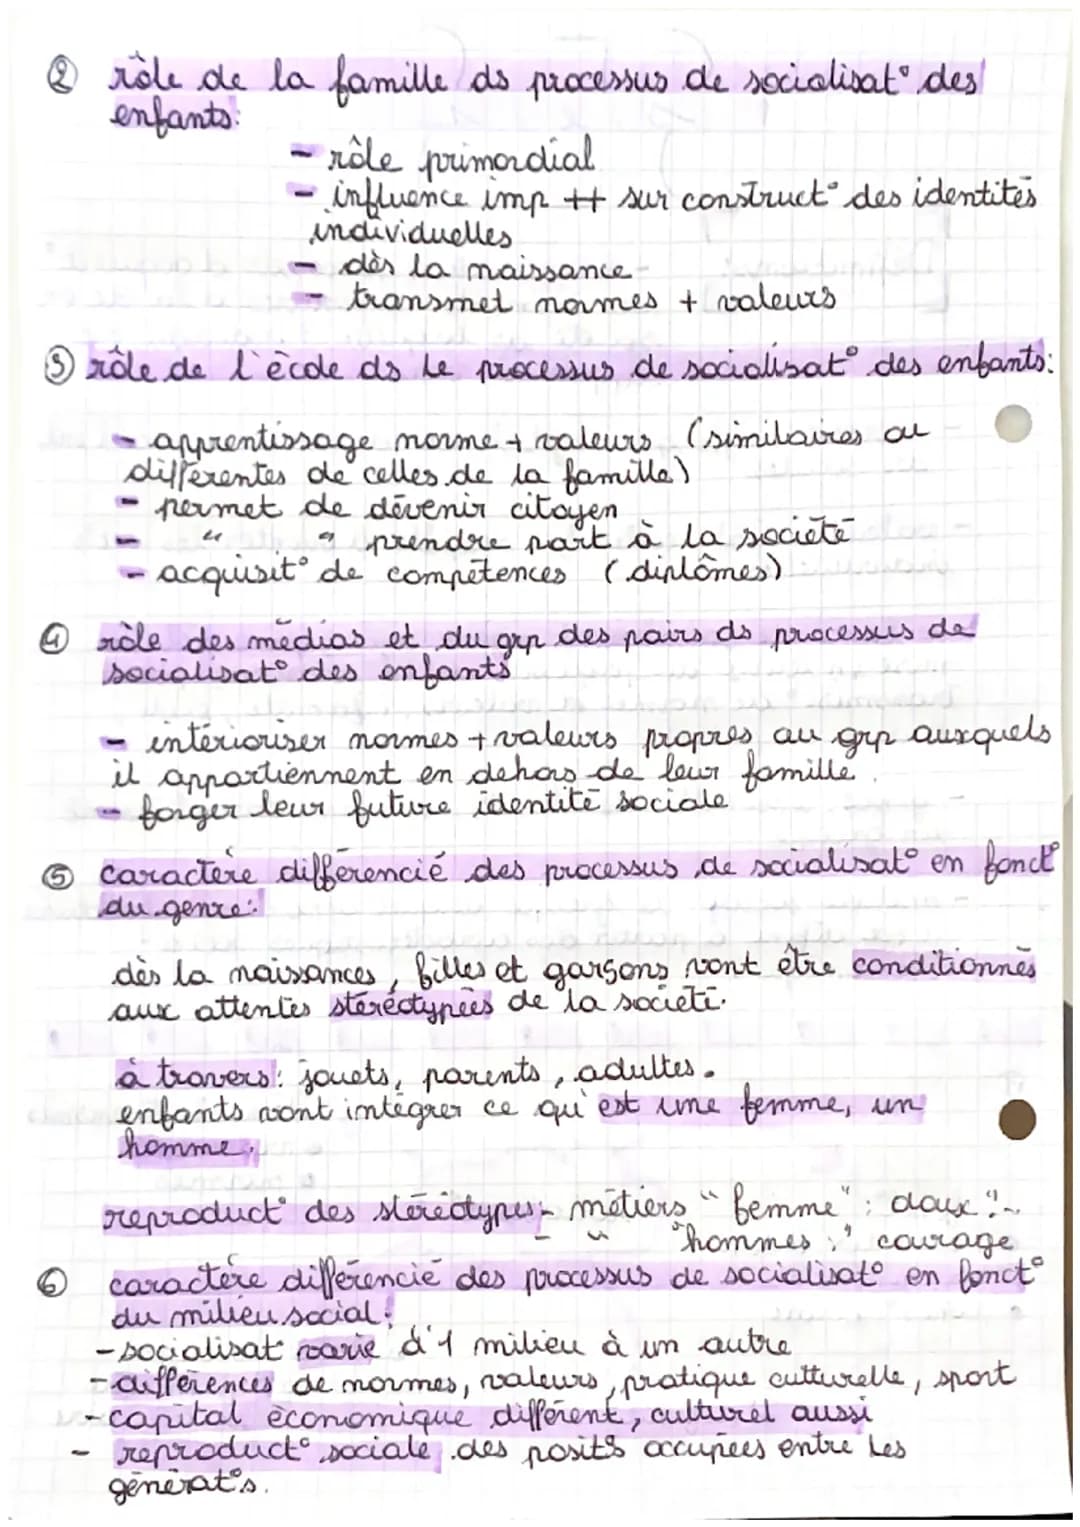 ② rôle de la famille ds processus de socialisat° des
enfants:
- rôle primordial
- influence imp ++ sur construct° des identités
individuelles
- dès la naissance
- transmet normes + valeurs
③ rôle de l'école ds le processus de socialisat° des enfants:
- apprentissage norme + valeurs (similaires ou
différentes de celles de la famille)
- permet de devenir citoyen
- " " prendre part à la société
- acquisit° de compétences (diplômes)
④ rôle des médias et du grp des pairs ds processus de
socialisat° des enfants
- intérioriser normes + valeurs propres au grp auxquels
il appartiennent en dehors de leur famille.
- forger leur future identité sociale
⑤ caractère différencié des processus de socialisat° en fonct°
du genre:
dès la naissances, filles et garçons vont être conditionnés
aux attentes stéréotypées de la société.
à travers: jouets, parents, adultes.
enfants vont intégrer ce qu'est une femme, un
homme.
reproduct° des stéréotypes: - métiers "femme": doux
- " "hommes": courage
⑥ caractère différencié des processus de socialisat° en fonct°
du milieu social:
- socialisat° varie d'1 milieu à un autre
- différences de normes, valeurs, pratique culturelle, sport
- capital économique différent, culturel aussi
- reproduct° sociale des posit°s occupées entre les
générat°s.